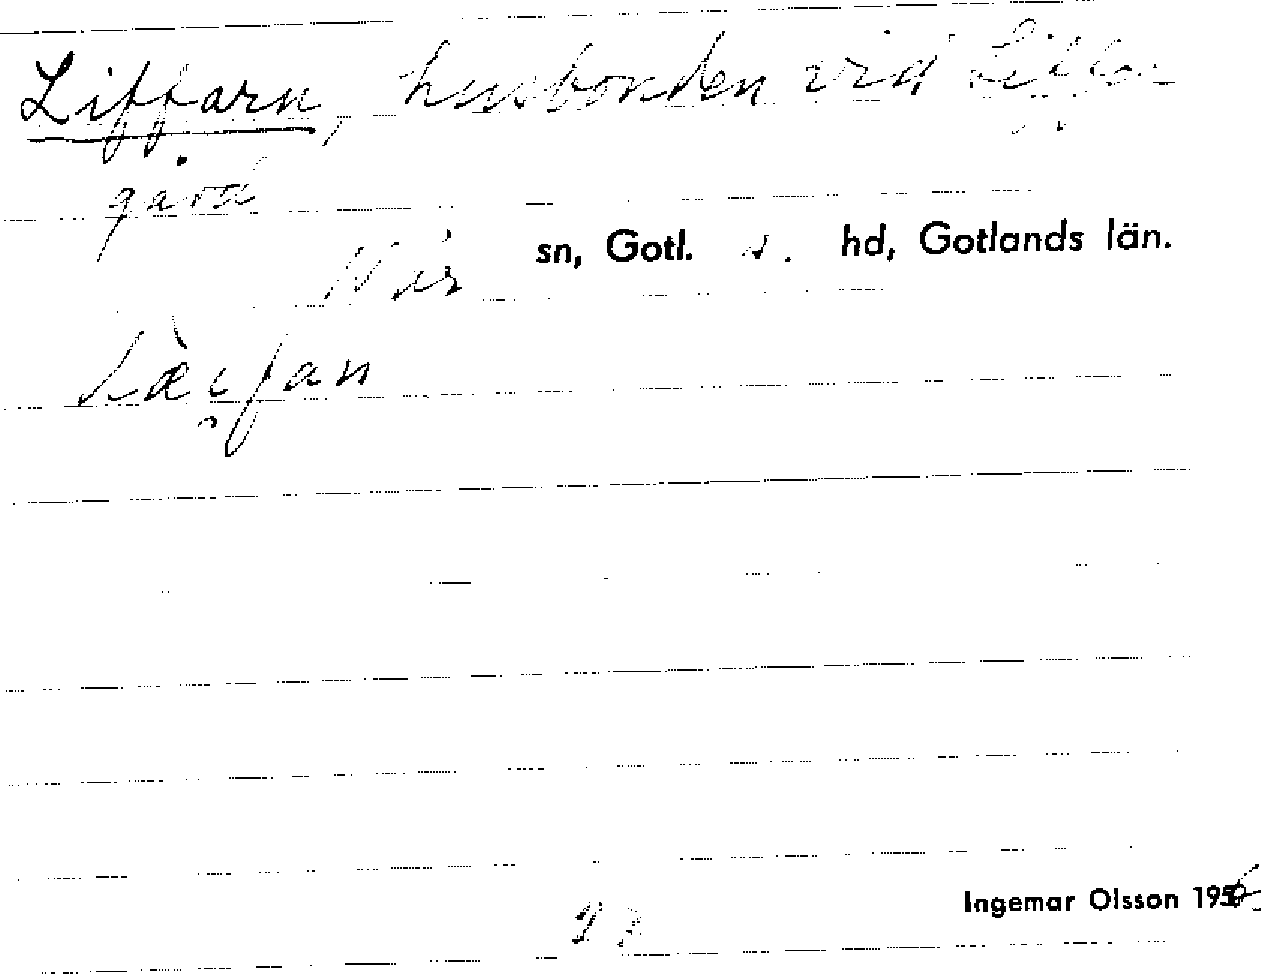 Liffarn, husbonden vid Liffor
gård
När sn, Gotl. s. hd, Gotlands län.
Ingemar Olsson 195